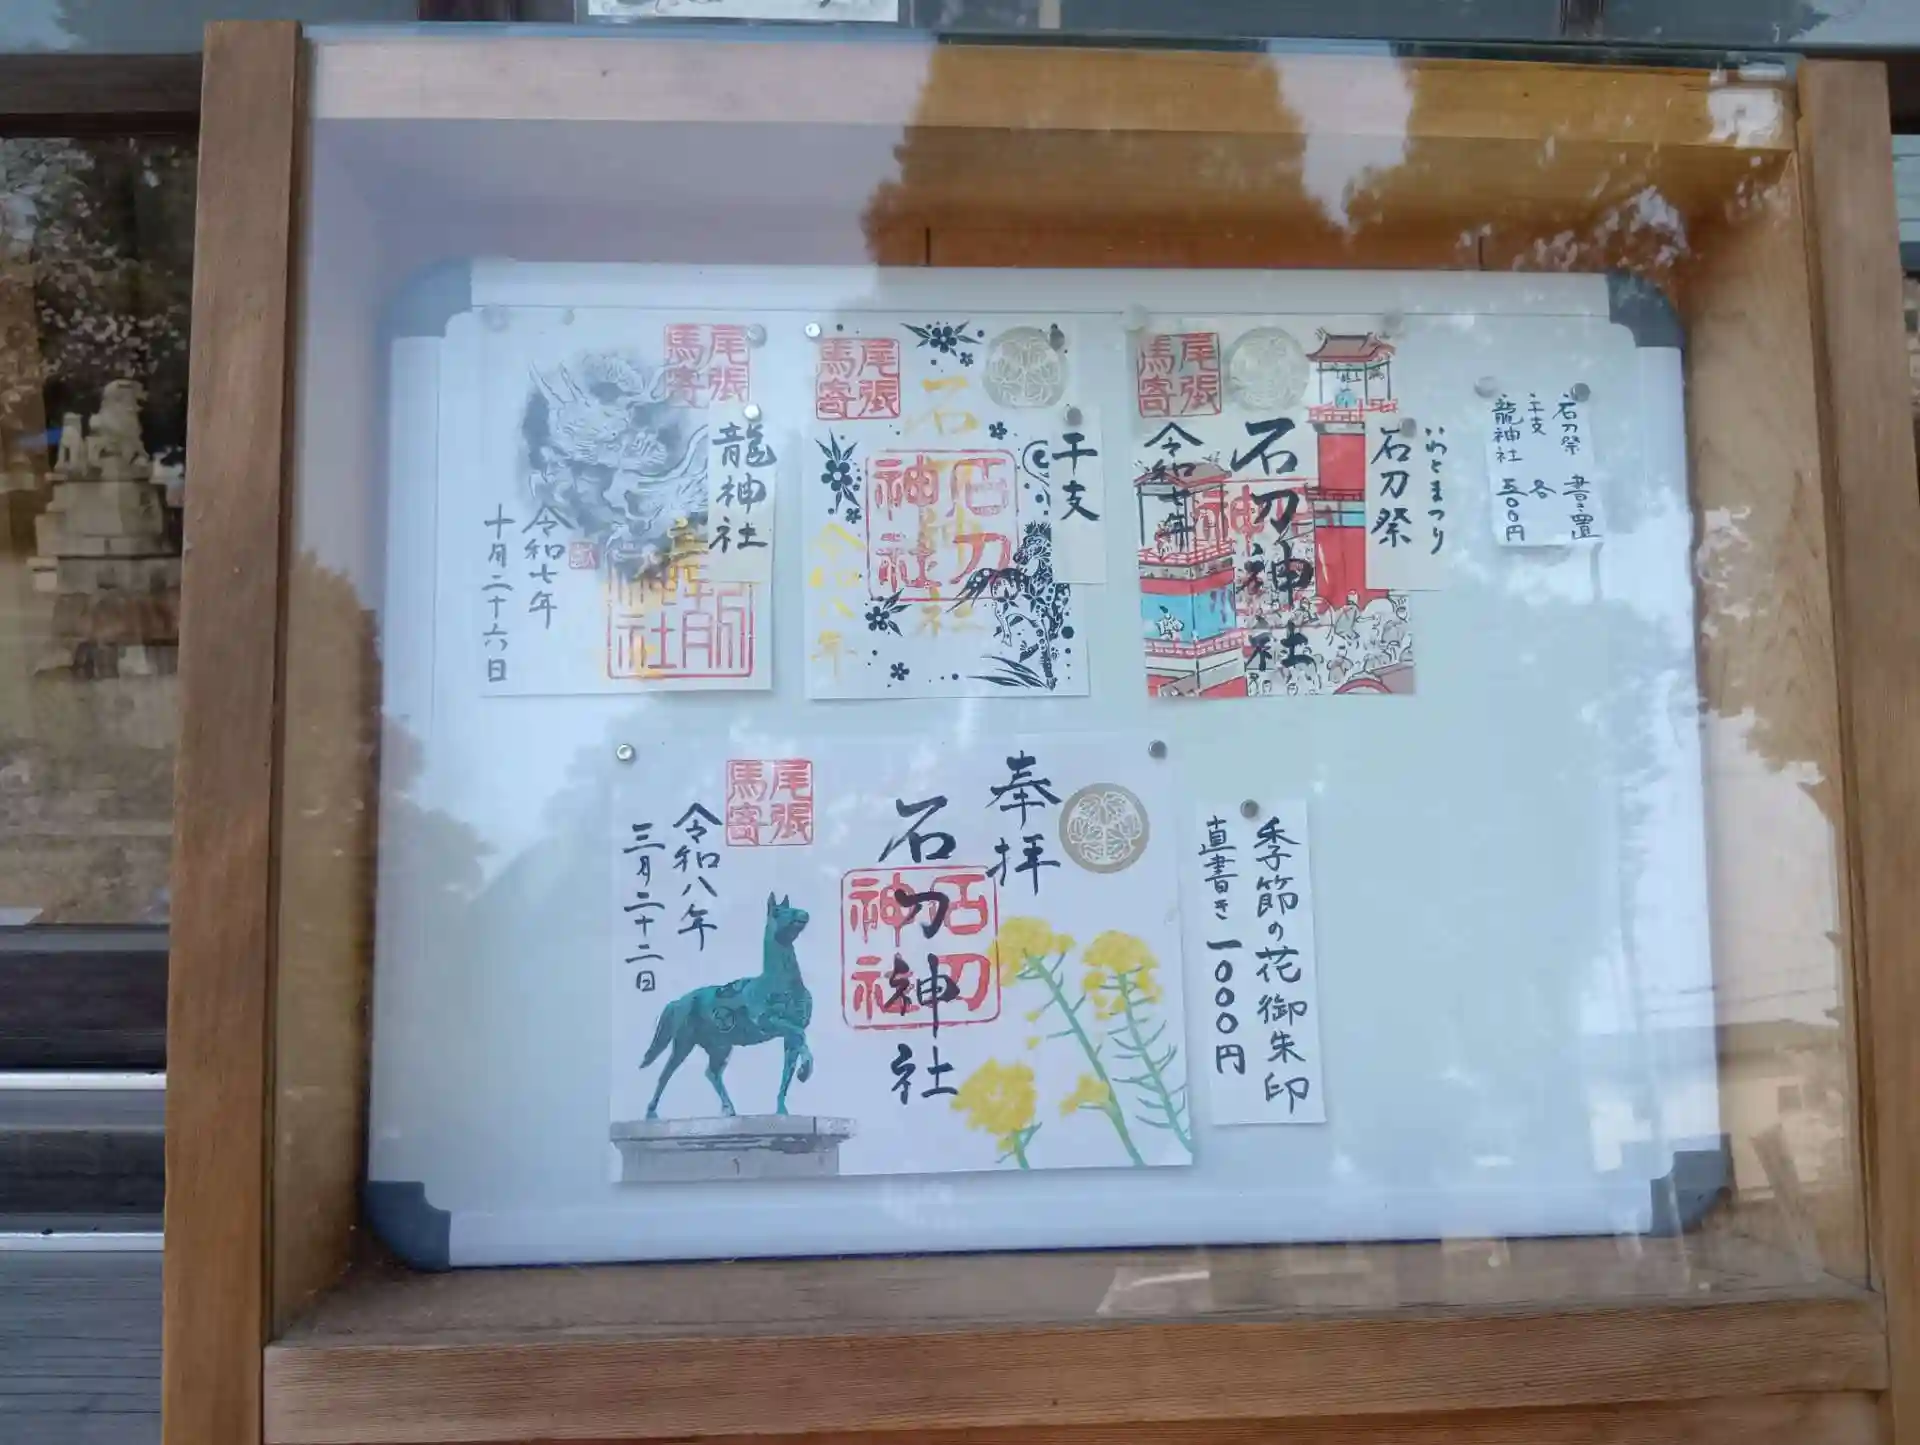 尾張
馬寄
龍神社
令和七年
十月二十六日
尾張
馬寄
干支
石刀神社
石刀
神社
令和八年
尾張
馬寄
いわとまつり
石刀祭
石刀神社
令和七年
石刀祭 書置
干支 各
龍神社 五〇〇円
奉拝
尾張
馬寄
石刀神社
石刀
神社
令和八年
三月二十二日
季節の花御朱印
直書き 一〇〇〇円